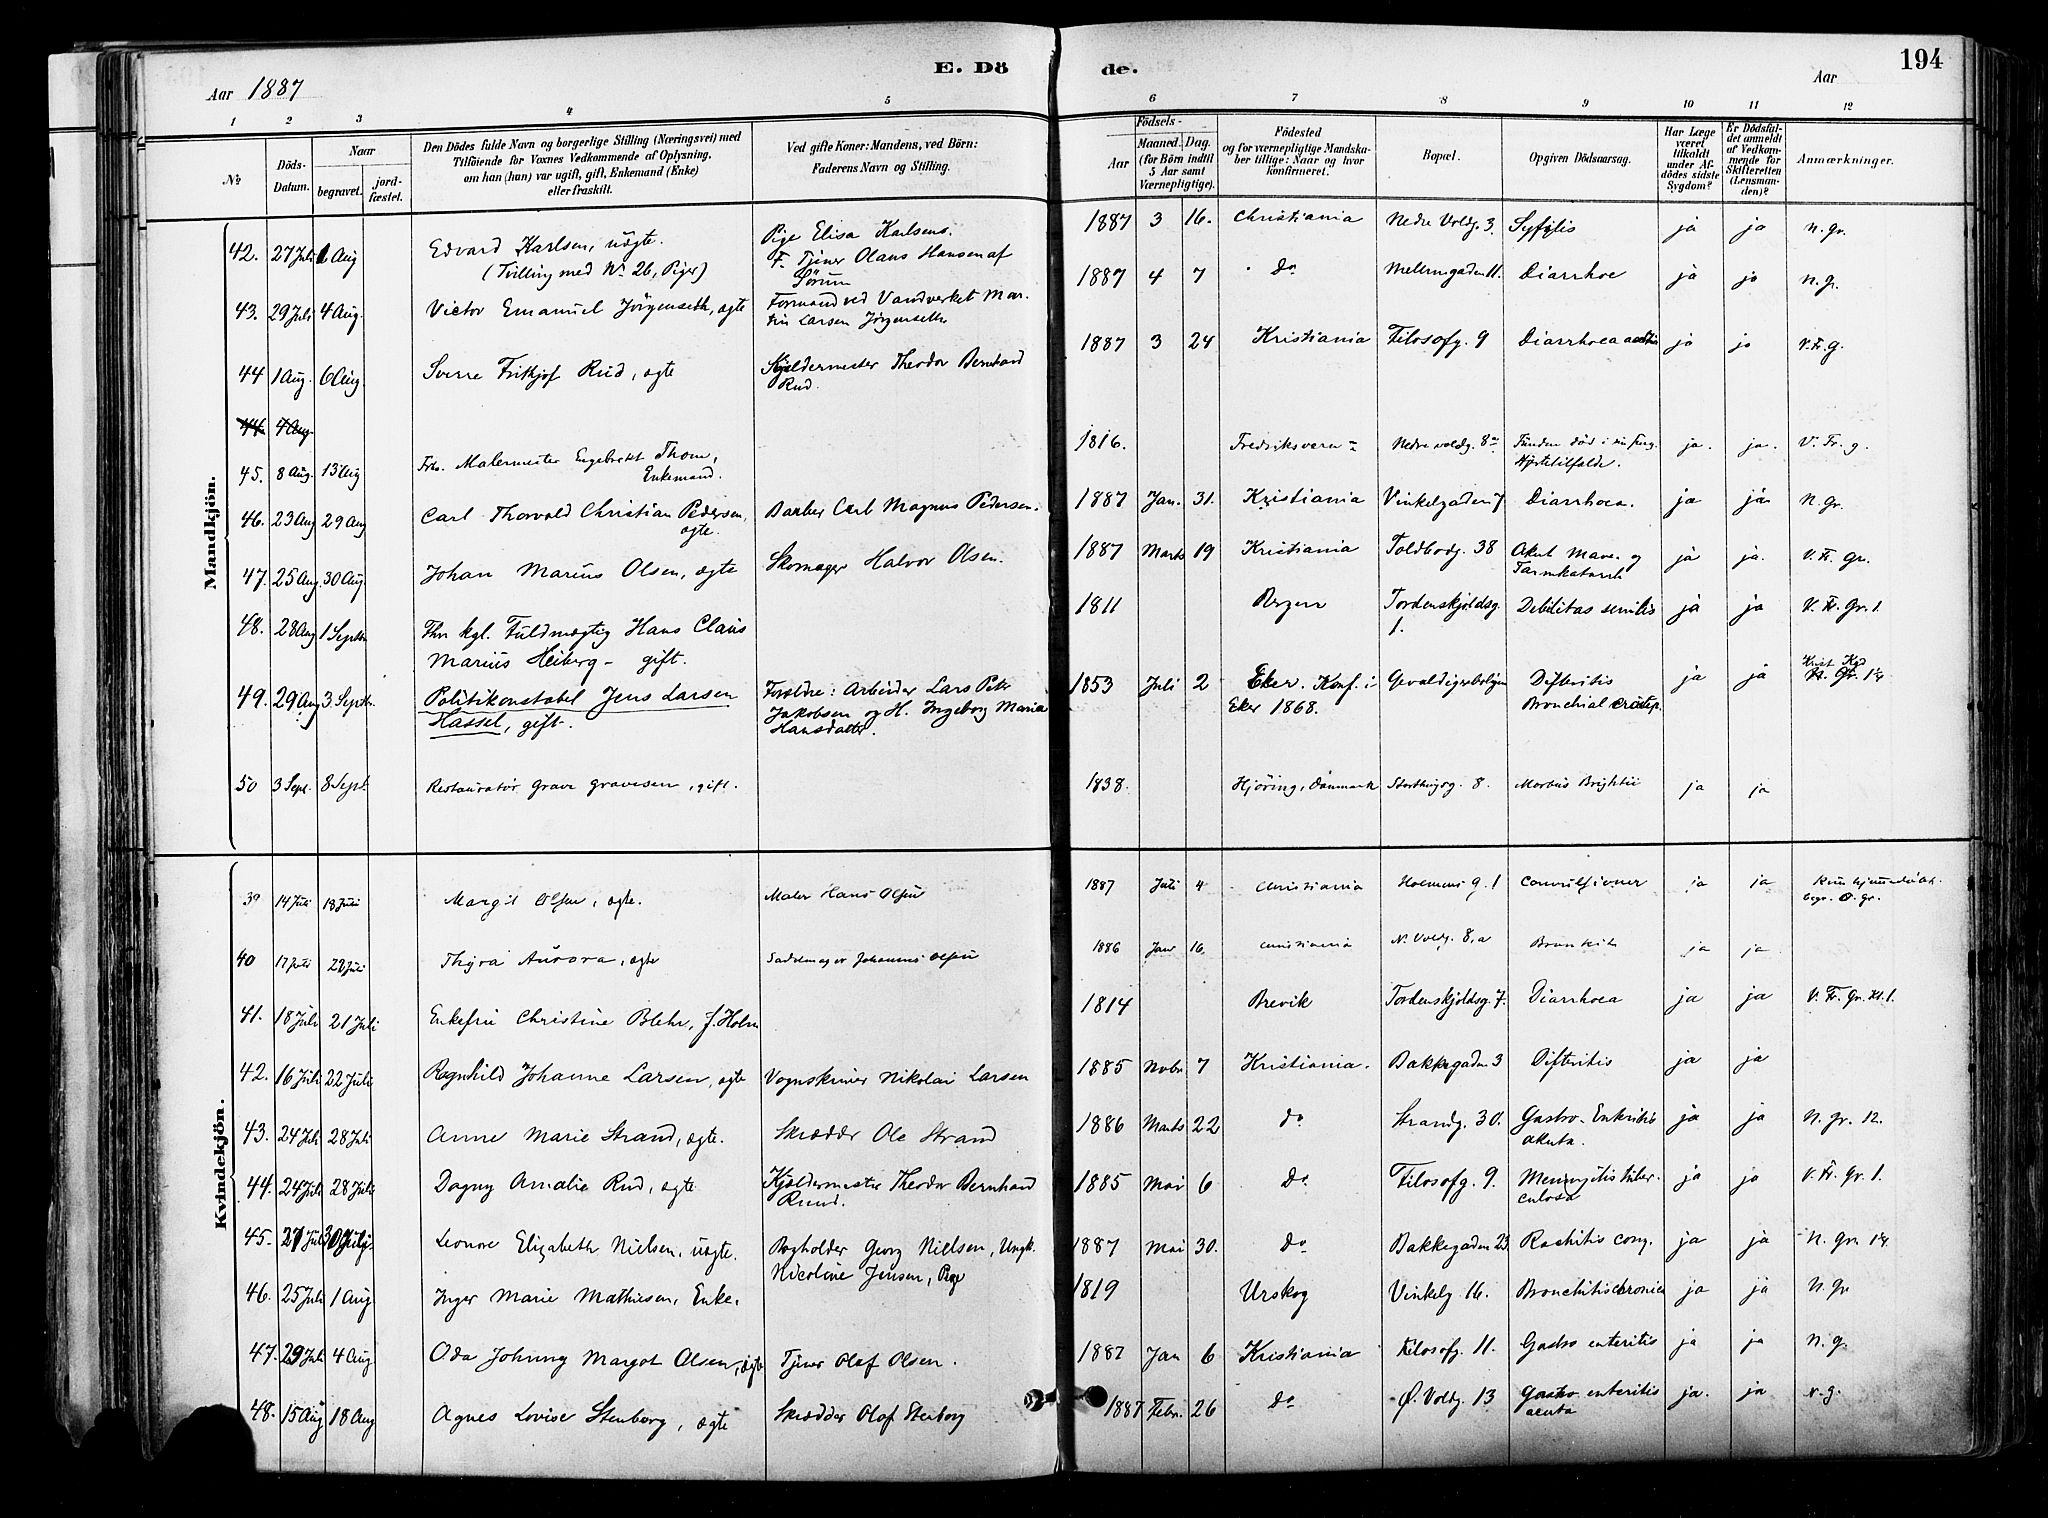 E. Dö de.
194
Aar 1887
Aar
1 2 3 4 5 6 7 8 9 10 11 12
No
Döds-Datum.
Naar
begravet.
jord-fæstet.
Den Dödes fulde Navn og borgerlige Stilling (Næringsvei) med
Tilföiende for Voxnes Vedkommende af Oplysning,
om han (hun) var ugift, gift, Enkemand (Enke)
eller fraskilt.
Ved gifte Koner: Mandens, ved Börn:
Faderens Navn og Stilling.
Födsels-
Aar
Maaned. Dag.
(for Börn indtil
5 Aar samt
Værnepligtige).
Födested
og for værnepligtige Mandska-
ber tillige: Naar og hvor
konfirmeret.
Bopæl.
Opgiven Dödsaarsag.
Har Læge
været
tilkaldt
under Af-
dödes sidste
Sygdom?
Er Dödsfal-
det anmeldt
af Vedkom-
mende for
Skifteretten
(Lensman-
den)?
Anmærkninger.
Mandkjön.
42. 27 Juli 1 Aug Edvard Karlsen, uægte. Pige Elisa Karlsens. 1887 3 16. Christiania Nedre Voldg. 3. Syfilis ja ja N. gr.
(Tvilling med No 26, Piger) F. Tjener Olaus Hansen af
Sörum
43. 29 Juli 4 Aug. Victor Emanuel Jörgenseth, ægte Formand ved Vandverket Mar- 1887 4 7 do Mellemgaden 11. Diarrhoe ja ja N. gr.
tin Larsen Jörgenseth
44 1 Aug. 6 Aug. Sverre Fritjof Rud, ægte Kjældermester Theodor Bernhard 1887 3 24 Kristiania Filosofg. 9 Diarrhoea ja ja V. Fr. g.
Rud.
44. 7 Aug.
45. 8 Aug. 13 Aug Malermester Engebrekt Thom, 1816. Fredriksværn Nedre voldg. 8a Funden død i sin ja. ja. V. Fr. g.
Enkemand. Hjertetilfælde.
46. 23 Aug 29 Aug Carl Thorvald Christian Pedersen, Barber Carl Magnus Pedersen. 1887 Jan. 31. Kristiania Vinkelgaden 7 Diarrhoea. ja ja N. gr.
ægte.
47. 25 Aug. 30 Aug. Johan Marius Olsen, ægte Skomager Halvor Olsen. 1887 Marts 19 Kristiania Toldbodg. 38 Akut Mave- og ja ja. V. Fr. Gr.
Tarmkatarrh
48. 28 Aug 1 Septbr kgl. Fuldmægtig Hans Claus 1811 Bergen Tordenskjoldsg. Debilitas senilis ja ja V. Fr. Gr. 1.
Marius Heiberg - gift. 1.
49. 29 Aug 3 Septbr. Politikonstabel Jens Larsen Forældre: Arbeider Lars Peter 1853 Juli 2 Eker. Konf. i Gevaldigerboligen Difteritis ja ja Krist
Hassel, gift. Jakobsen og H. Ingeborg Maria Eker 1868. Bronchial croup.
Hansdatter.
50 3 Sept. 8 Sept Restauratör Grave Gravesen, gift. 1838. Hjöring, Danmark Storthingsg. 8. Morbus Brightii ja ja
Kvindekjön.
39 14 Juli 18 Juli Margit Olsen, ægte. Maler Hans Olsen 1887 Juli 4 Christiania Holmens g. 1 Convulsioner ja ja
begr. Ö. gr.
40 17 Juli 22 Juli Thyra Aurora, ægte Sadelmager Johannes Olsen 1886 Jan 16. Christiania N. Voldg. 8, a Bronkit ja ja
41. 18 Juli 21 Juli Enkefru Christine Blehr, f. Holm 1814 Brevik Tordenskjoldsg. 7. Diarrhoea ja ja V. Fr. Gr. Kl. 1.
42. 16 Juli 22 Juli Ragnhild Johanne Larsen, ægte Vognskriver Nikolai Larsen 1885 Nvbr 7 Kristiania. Bakkegaden 3 Difteritis ja ja
43. 24 Juli 28 Juli Anne Marie Strand, ægte. Skrædder Ole Strand 1886 Marts 22 do Strandg. 30. Gastro-Enteritis ja ja N. gr. 12.
akuta.
44. 24 Juli 28 Juli Dagny Amalie Rud, ægte Kjældermester Theodor Bernhard 1885 Mai 6 do Filosofg. 9 Meningitis tuber- ja ja V. Fr. Gr. 1.
Ruud. culosa
45. 27 Juli 30 Juli Leonore Elizabeth Nielsen, uægte. Bogholder Georg Nielsen, Ungk. 1887 Mai 30. do Bakkegaden 23. Rachitis cong. ja ja N. Gr.
Nicoline Jensen, Pige
46. 25 Juli 1 Aug Inger Marie Mathiesen, Enke. 1819 Urskog Vinkelg 16. Bronchitis chronica ja ja N. gr
47. 29 Juli 4 Aug Oda Johnny Margot Olsen, ægte Tjener Olaf Olsen. 1887 Jan 6 Kristiania Filosofg. 11. Gastro enteritis ja ja N. g.
48. 15 Aug 18 Aug Agnes Lovise Stenborg, ægte Skrædder Olaf Stenborg 1887 Febr. 26 do Ø. Voldg. 13 Gastro enteritis ja. ja N. g.
acuta